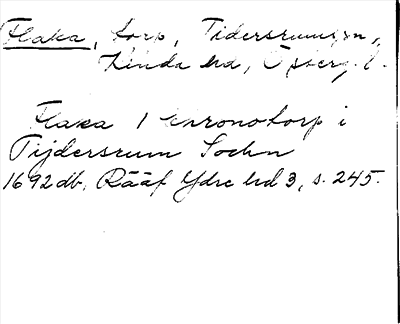 Flaka, torp, Tidersrum sn,
Kinda hd, Östergl.
Flaka 1 Chronotorp i
Tijdersrum Sochn
1692 db, Rääf Ydre hd 3, s. 245.